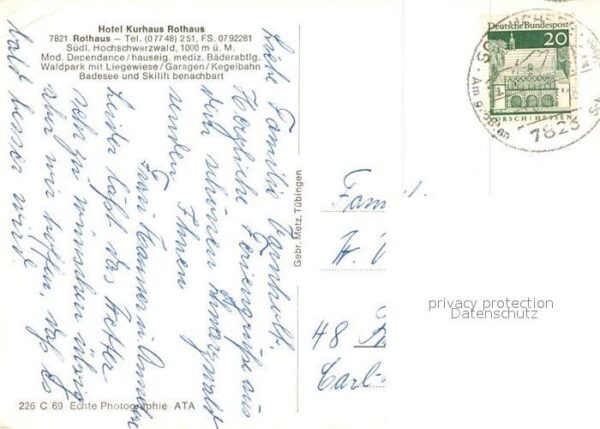 Hotel Kurhaus Rothaus
7821 Rothaus – Tel. (07748) 251, FS. 0792281
Südl. Hochschwarzwald, 1000 m ü. M.
Mod. Dependance / hauseig. mediz. Bäderabtlg.
Waldpark mit Liegewiese / Garagen / Kegelbahn
Badesee und Skilift benachbart
Liebe Familie
Herzliche Feriengrüße aus
dem schönen Schwarzwald
senden Ihnen
Leider läßt das Wetter
sehr zu wünschen übrig
aber wir hoffen, daß es
bald besser wird.
226 C 69 Echte Photographie ATA
Gebr. Metz, Tübingen
Deutsche Bundespost
20
LORSCH/HESSEN
7823
Fam
48
Carl-
privacy protection
Datenschutz